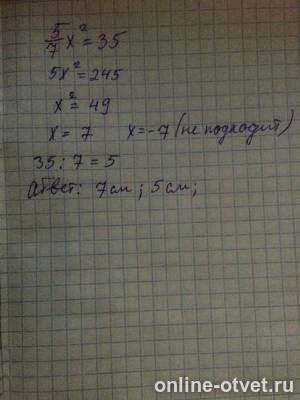 5/7 x² = 35
5x² = 245
x² = 49
x = 7 x = -7 (не подходит)
35 : 7 = 5
Ответ: 7 см ; 5 см ;
online-otvet.ru